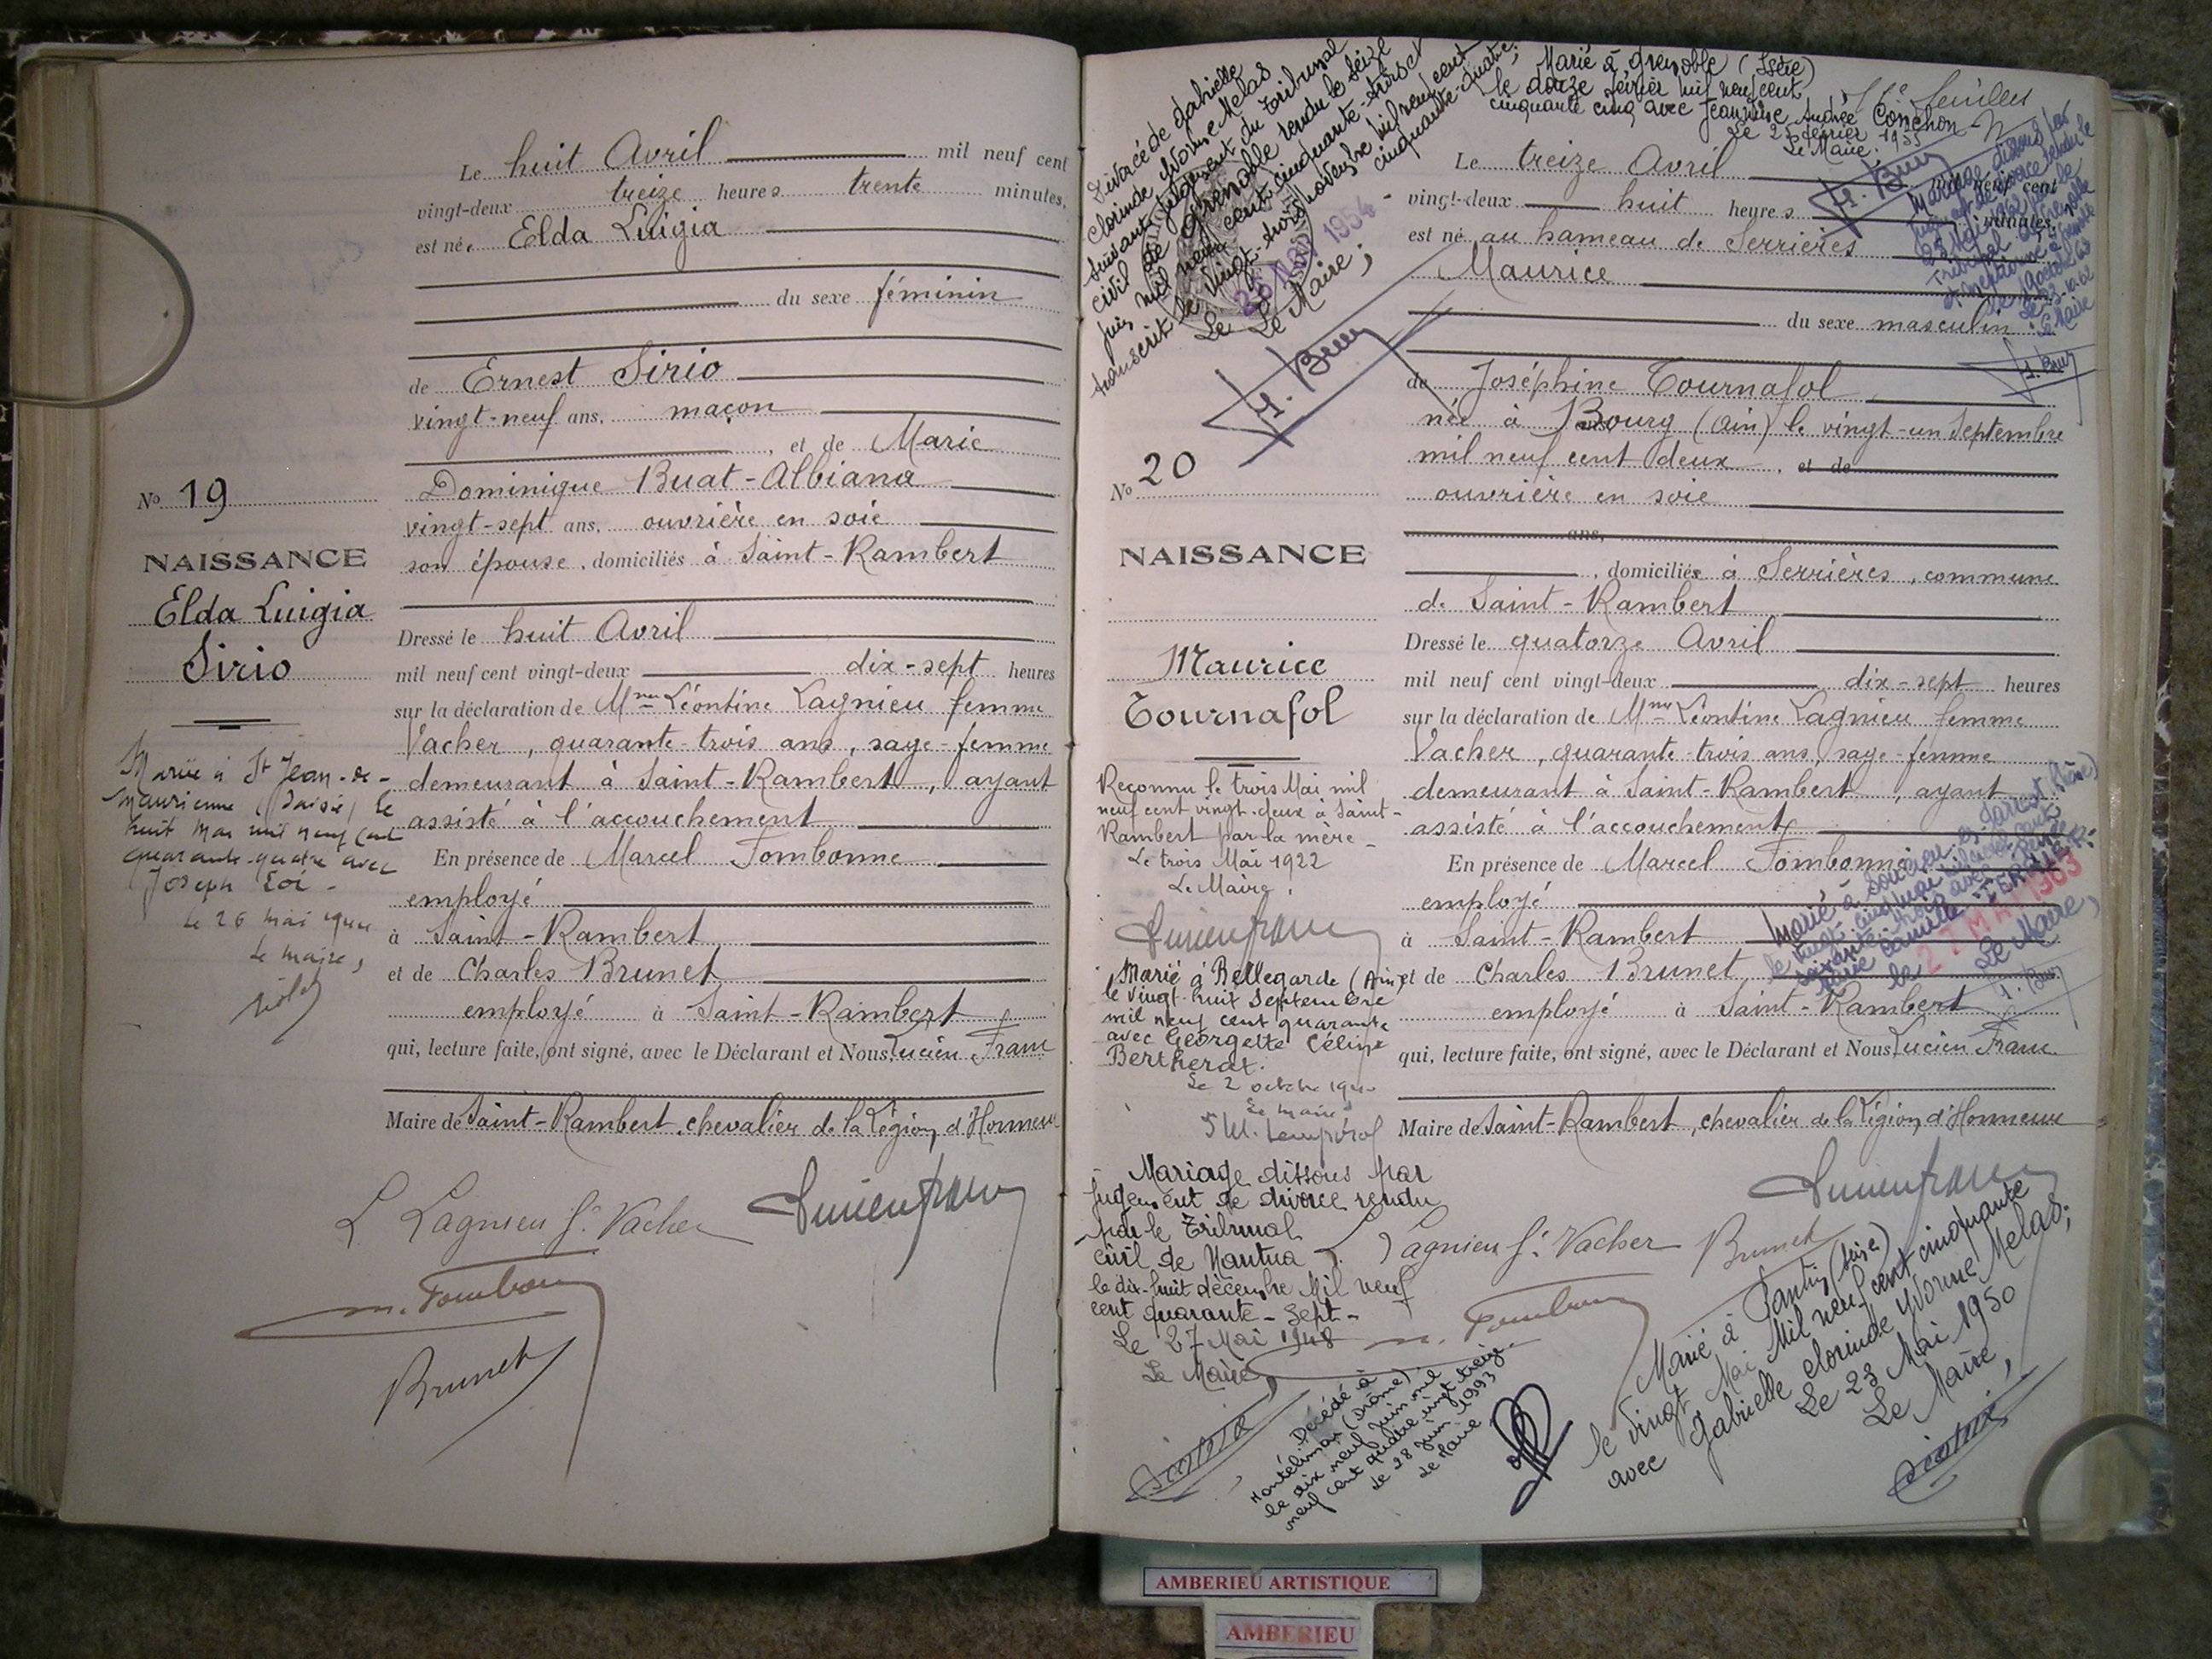 Le huit Avril mil neuf cent
vingt-deux treize heures trente minutes,
est née Elda Luigia
du sexe féminin
de Ernest Sirio
vingt-neuf ans, maçon
, et de Marie
Dominique Buat-Albiana
vingt-sept ans, ouvrière en soie
son épouse, domiciliés à Saint-Rambert
Dressé le huit Avril
mil neuf cent vingt-deux dix-sept heures
sur la déclaration de Mme Léontine Lagnieu femme
Vacher, quarante-trois ans, sage-femme
demeurant à Saint-Rambert, ayant
assisté à l'accouchement
En présence de Marcel Tombonne
employé
à Saint-Rambert
et de Charles Brunet
employé à Saint-Rambert
qui, lecture faite, ont signé, avec le Déclarant et Nous, Lucien Franc
Maire de Saint-Rambert, chevalier de la Légion d'Honneur
L. Lagnieu f. Vacher Lucien franc
m. Tombon
Brunet
No 19
NAISSANCE
Elda Luigia
Sirio
Mariée à St Jean-de-
Maurienne (Savoie) le
huit Mai mil neuf cent
quarante-quatre avec
Joseph
le 26 mai
Le maire,
Divorcé de Gabrielle
Clorinde Yvonne Melas
suivant jugement du Tribunal
civil de Grenoble rendu le seize
juin mil neuf cent cinquante-trois et
transcrit le vingt-trois novembre mil neuf cent
cinquante-quatre;
Le 25 1954
Le Maire,
Marié à Grenoble (Isère)
le douze février mil neuf cent
cinquante cinq avec Jeannine Andrée Conchon
Le 25 février 1955
Le Maire,
Mariage dissous par
jugement de divorce rendu le
Tribunal de Grenoble
Le Maire
Le treize Avril mil neuf cent
vingt-deux huit heures minutes,
est né au hameau de Serrières
Maurice
du sexe masculin
de Joséphine Tournafol,
née à Bourg (Ain) le vingt-un Septembre
mil neuf cent deux, et de
ouvrière en soie
ans,
, domiciliée à Serrières, commune
de Saint-Rambert
Dressé le quatorze Avril
mil neuf cent vingt-deux dix-sept heures
sur la déclaration de Mme Léontine Lagnieu femme
Vacher, quarante-trois ans, sage-femme
demeurant à Saint-Rambert, ayant
assisté à l'accouchement
En présence de Marcel Tombonne
employé
à Saint-Rambert
et de Charles Brunet
employé à Saint-Rambert
qui, lecture faite, ont signé, avec le Déclarant et Nous, Lucien Franc
Maire de Saint-Rambert, chevalier de la Légion d'Honneur
Lucien franc
L. Lagnieu f. Vacher Brunet
m. Tombon
No 20
NAISSANCE
Maurice
Tournafol
Reconnu le trois Mai mil
neuf cent vingt-deux à Saint-
Rambert par la mère -
Le trois Mai 1922
Le Maire,
Lucien franc
Marié à Bellegarde (Ain)
le vingt-huit Septembre
mil neuf cent quarante
avec Georgette Céline
Bertherat.
Le 2 octobre
Le maire
Mariage dissous par
jugement de divorce rendu
par le Tribunal
civil de Nantua
le dix-huit décembre Mil neuf
cent quarante-sept-
Le 27 Mai 1948
Le Maire,
Décédé à
Montélimar (Drôme)
le dix neuf juin mil
neuf cent quatre vingt treize
Le 28 Juin 1993
Le Maire
Marié à Pantin (Seine)
le vingt Mai Mil neuf cent cinquante
avec Gabrielle Clorinde Yvonne Melas;
Le 23 Mai 1950
Le Maire,
Marié à
Le 27 MAI 1963
Le Maire,
AMBERIEU ARTISTIQUE
AMBERIEU